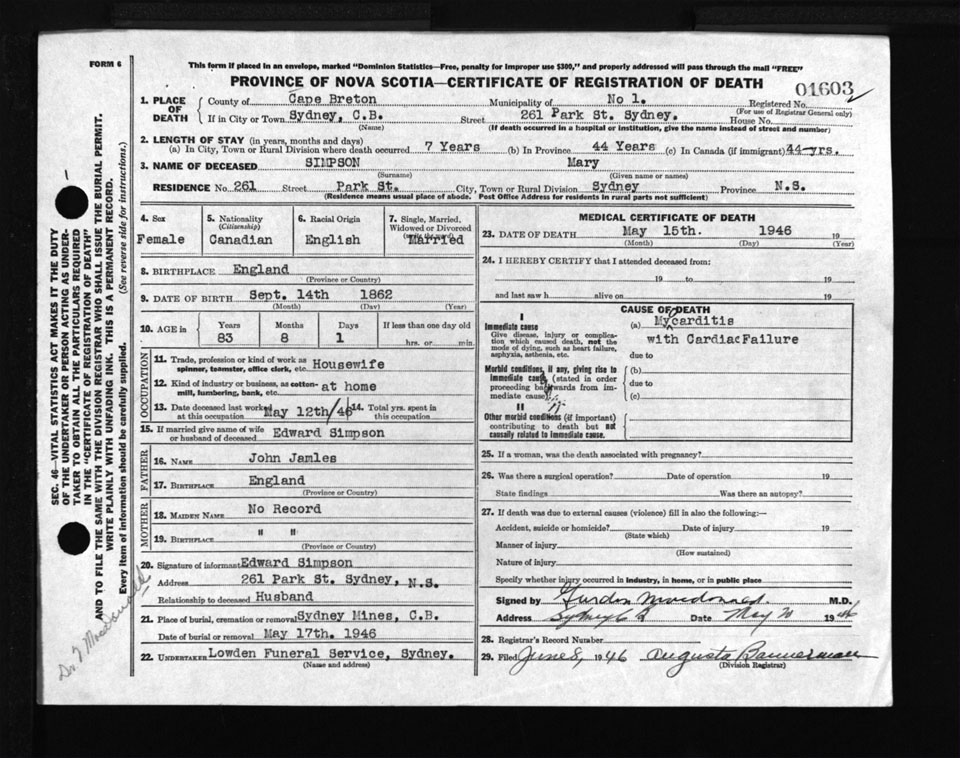 FORM 6
This form if placed in an envelope, marked "Dominion Statistics—Free, penalty for improper use $300," and properly addressed will pass through the mail "FREE"
PROVINCE OF NOVA SCOTIA—CERTIFICATE OF REGISTRATION OF DEATH
01603
1. PLACE OF DEATH
County of Cape Breton Municipality of No 1. Registered No.
(For use of Registrar General only)
If in City or Town Sydney, C.B. Street 261 Park St. Sydney. House No.
(Name) (If death occurred in a hospital or institution, give the name instead of street and number)
2. LENGTH OF STAY (in years, months and days)
(a) In City, Town or Rural Division where death occurred 7 Years (b) In Province 44 Years (c) In Canada (if immigrant) 44-yrs.
3. NAME OF DECEASED SIMPSON Mary
(Surname) (Given name or names)
RESIDENCE No. 261 Street Park St. City, Town or Rural Division Sydney Province N.S.
(Residence means usual place of abode. Post Office Address for residents in rural parts not sufficient)
4. Sex
Female
5. Nationality
(Citizenship)
Canadian
6. Racial Origin
English
7. Single, Married,
Widowed or Divorced
Married
8. BIRTHPLACE England
(Province or Country)
9. DATE OF BIRTH Sept. 14th 1862
(Month) (Day) (Year)
10. AGE in
Years Months Days If less than one day old
83 8 1 hrs. or min.
OCCUPATION
11. Trade, profession or kind of work as
spinner, teamster, office clerk, etc. Housewife
12. Kind of industry or business, as cotton-
mill, lumbering, bank, etc. at home
13. Date deceased last worked
at this occupation May 12th/46
14. Total yrs. spent in
this occupation
15. If married give name of wife
or husband of deceased Edward Simpson
FATHER
16. NAME John Jamles
17. BIRTHPLACE England
(Province or Country)
MOTHER
18. MAIDEN NAME No Record
19. BIRTHPLACE " "
(Province or Country)
20. Signature of informant Edward Simpson
Address 261 Park St. Sydney, N.S.
Relationship to deceased Husband
21. Place of burial, cremation or removal Sydney Mines, C.B.
Date of burial or removal May 17th. 1946
22. UNDERTAKER Lowden Funeral Service, Sydney.
(Name and address)
MEDICAL CERTIFICATE OF DEATH
23. DATE OF DEATH May 15th. 1946 19
(Month) (Day) (Year)
24. I HEREBY CERTIFY that I attended deceased from:
19 to 19
and last saw h alive on 19
CAUSE OF DEATH
I
Immediate cause
Give disease, injury or complica-
tion which caused death, not the
mode of dying, such as heart failure,
asphyxia, asthenia, etc.
(a) Mycarditis
with Cardiac Failure
due to
Morbid conditions, if any, giving rise to
immediate cause, (stated in order
proceeding backwards from im-
mediate cause)
(b)
due to
(c)
II
Other morbid conditions (if important)
contributing to death but not
causally related to immediate cause.
25. If a woman, was the death associated with pregnancy?
26. Was there a surgical operation? Date of operation 19
State findings Was there an autopsy?
27. If death was due to external causes (violence) fill in also the following:—
Accident, suicide or homicide? Date of injury 19
(State which)
Manner of injury
(How sustained)
Nature of injury
Specify whether injury occurred in industry, in home, or in public place
Signed by Gurdon Macdonald. M.D.
Address Sydney C B Date May 20 1946
28. Registrar's Record Number
29. Filed June 8, 1946 Augusta Bannerman
(Division Registrar)
SEC. 46—VITAL STATISTICS ACT MAKES IT THE DUTY
OF THE UNDERTAKER OR PERSON ACTING AS UNDER-
TAKER TO OBTAIN ALL THE PARTICULARS REQUIRED
IN THE "CERTIFICATE OF REGISTRATION OF DEATH"
AND TO FILE THE SAME WITH THE DIVISION REGISTRAR WHO SHALL ISSUE THE BURIAL PERMIT.
WRITE PLAINLY WITH UNFADING INK. THIS IS A PERMANENT RECORD.
Every item of information should be carefully supplied. (See reverse side for instructions.)
Dr. G MacDonald